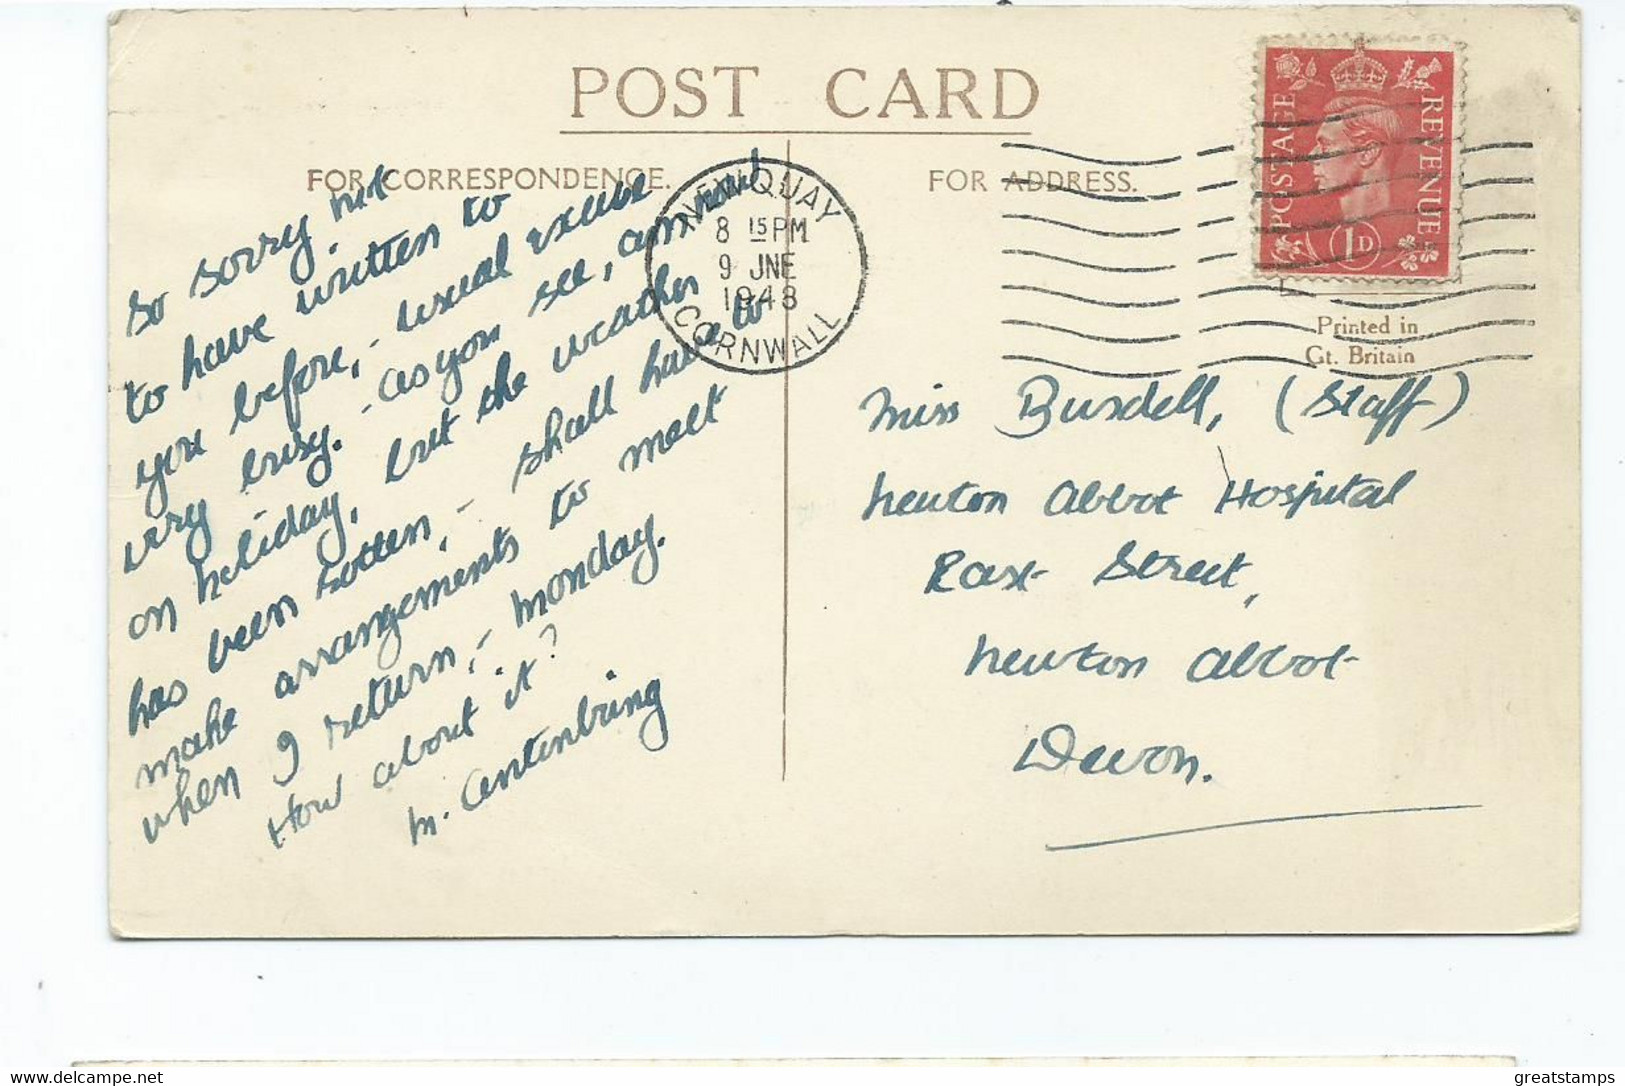 POST CARD
FOR CORRESPONDENCE.
So sorry not
to have written to
you before, - usual excuse
very busy. - as you see, am now
on holiday, but the weather
has been rotten, - shall have to
make arrangements to meet
when I return, - Monday.
How about it?
M.
NEWQUAY
8 15 PM
9 JNE
1948
CORNWALL
FOR ADDRESS.
POSTAGE
REVENUE
1D
Printed in
Gt. Britain
Miss Burdell, (Staff)
Newton Abbot Hospital
East Street,
Newton Abbot
Devon.
www.delcampe.net
greatstamps